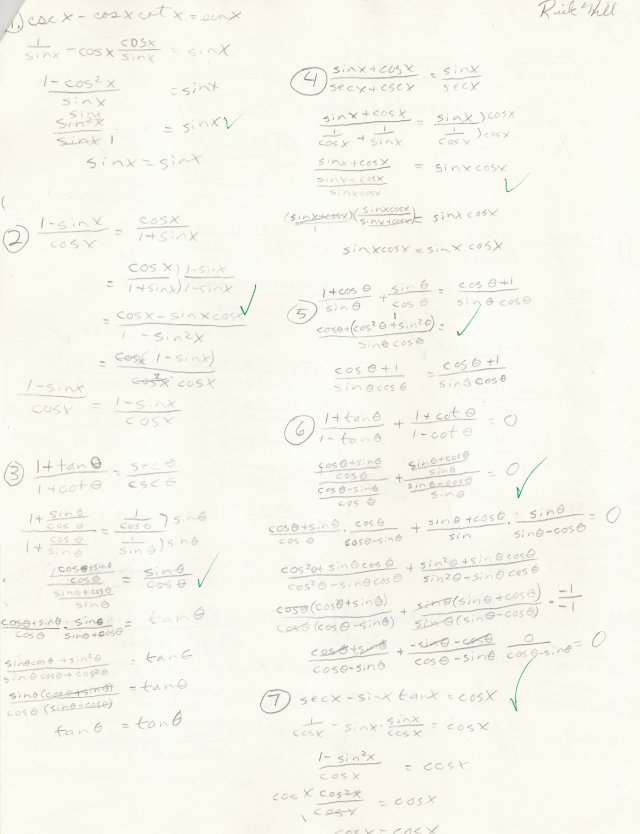 Rick Hill
1. csc x - cos x cot x = sin x
1/sin x - cos x cos x/sin x = sin x
1 - cos²x / sin x = sin x
sin x
sin²x / sin x 1 = sin x ✓
sin x = sin x
2 1 - sin x / cos x = cos x / 1 + sin x
= cos x / 1 + sin x ) 1 - sin x / 1 - sin x
= cos x - sin x cos x / 1 - sin²x ✓
= cos x 1 - sin x) / cos²x cos x
1 - sin x / cos x = 1 - sin x / cos x
3 1 + tan θ / 1 + cot θ = sec θ / csc θ
1 + sin θ/cos θ / 1 + cos θ/sin θ = 1/cos θ ) sin θ / 1/sin θ ) sin θ
cos θ + sin θ / cos θ / sin θ + cos θ / sin θ = sin θ / cos θ ✓
cos θ + sin θ / cos θ · sin θ / sin θ + cos θ = tan θ
sin θ cos θ + sin²θ / sin θ cos θ + cos²θ = tan θ
sin θ (cos θ + sin θ) / cos θ (sin θ + cos θ) = tan θ
tan θ = tan θ
4 sin x + cos x / sec x + csc x = sin x / sec x
sin x + cos x / 1/cos x + 1/sin x = sin x ) cos x / 1/cos x ) cos x
sin x + cos x / sin x + cos x / sin x cos x = sin x cos x ✓
(sin x + cos x / 1)(sin x cos x / sin x + cos x) = sin x cos x
sin x cos x = sin x cos x
5 1 + cos θ / sin θ + sin θ / cos θ = cos θ + 1 / sin θ cos θ
1
cos θ + (cos²θ + sin²θ) / sin θ cos θ = ✓
cos θ + 1 / sin θ cos θ = cos θ + 1 / sin θ cos θ
6 1 + tan θ / 1 - tan θ + 1 + cot θ / 1 - cot θ = 0
cos θ + sin θ / cos θ / cos θ - sin θ / cos θ + sin θ + cos θ / sin θ / sin θ - cos θ / sin θ = 0 ✓
cos θ + sin θ / cos θ · cos θ / cos θ - sin θ + sin θ + cos θ / sin · sin θ / sin θ - cos θ = 0
cos²θ + sin θ cos θ / cos²θ - sin θ cos θ + sin²θ + sin θ cos θ / sin²θ - sin θ cos θ
cos θ (cos θ + sin θ) / cos θ (cos θ - sin θ) + sin θ (sin θ + cos θ) / sin θ (sin θ - cos θ) · -1 / -1
cos θ + sin θ / cos θ - sin θ + -sin θ - cos θ / cos θ - sin θ 0 / cos θ - sin θ = 0
7 sec x - sin x tan x = cos x ✓
1/cos x - sin x · sin x / cos x = cos x
1 - sin²x / cos x = cos x
cos x cos²x / cos x = cos x
cos x = cos x